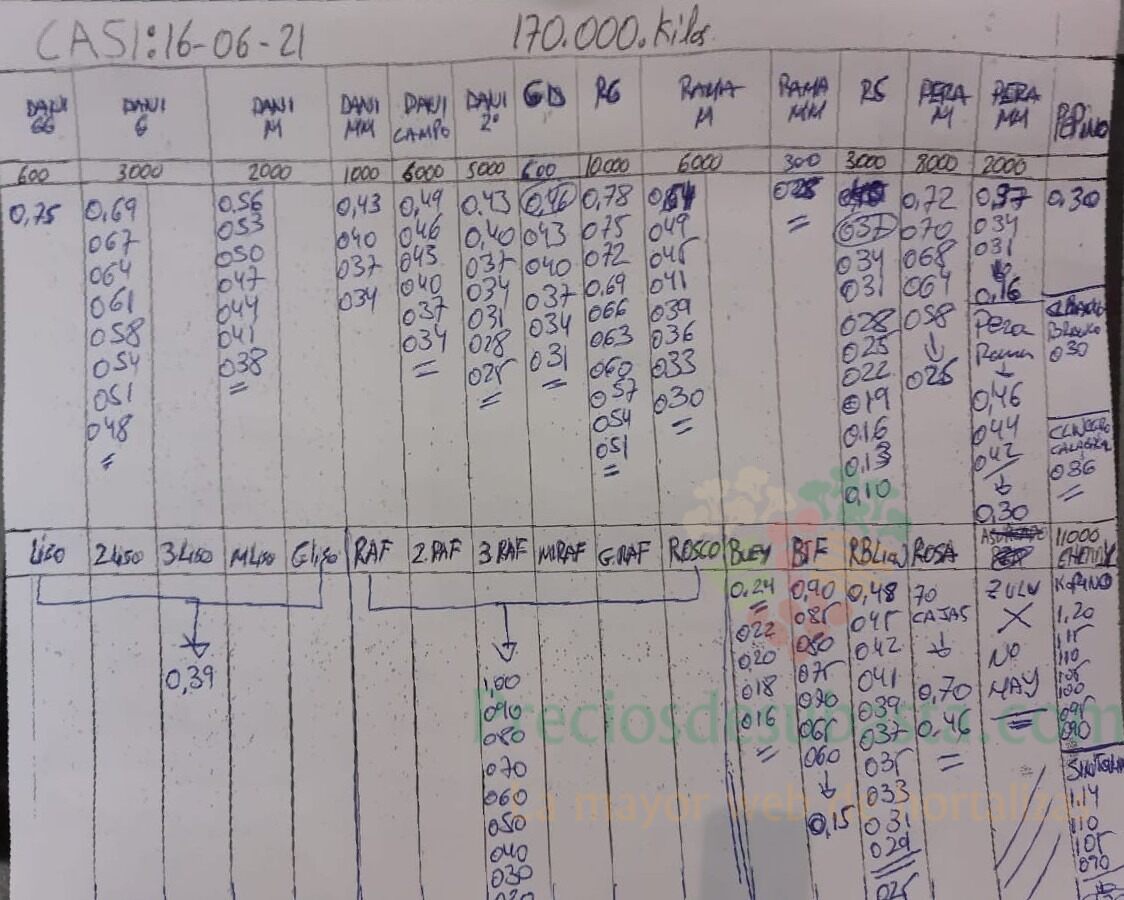 CASI: 16-06-21 170.000. Kilos
DANI GG DANI G DANI M DANI MM DANI CAMPO DANI 2º GB RG RAMA M RAMA MM RS PERA M PERA MM PEPINO
600 3000 2000 1000 6000 5000 600 10000 6000 300 3000 8000 2000
0,75 0,69 0.56 0,43 0,49 0.43 0,46 0,78 0,30
067 053 040 046 0,40 043 075 049 037 070 034
064 050 037 043 037 040 072 045 034 068 031
061 047 034 040 034 037 0,69 041 031 064 0,16
058 044 037 031 034 066 039 028 058
054 041 034 028 031 063 036 025 ↓
051 038 025 060 033 022 025
048 057 030 019
054 0.16
051 0,13
0,10
0,72
Pera
Rama
↓
0,46
044
042
↓
0,30
BLANCO
030
036
LISO 2 LISO 3 LISO M LISO G LISO RAF 2.RAF 3 RAF M RAF G.RAF ROSCO BUEY BTF RBLiso ROSA 11000
0,39
1,00
090
080
070
060
050
040
030
0,24
022
020
018
016
0,90
085
080
075
070
065
060
↓
0,15
0,48
045
042
041
039
037
035
033
031
029
025
70
CAJAS
↓
0,70
0,46
ZULU
X
NO
HAY
1,20
115
110
105
100
095
090
1.14
110
105
090
Preciosdesubasta.com
La mayor web de hortalizas